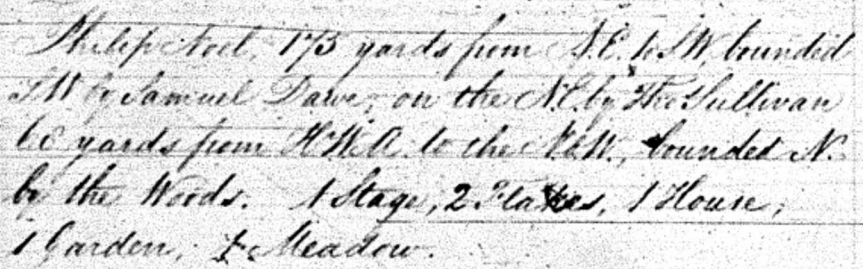 Philip Noel, 175 yards from N.E. to SW, bounded
SW by Samuel Dawe, on the NE by Tho Sullivan
60 yards from HWM to the N&W, bounded N.
by the Woods. 1 Stage, 2 Flakes, 1 House,
1 Garden, 1 Meadow.